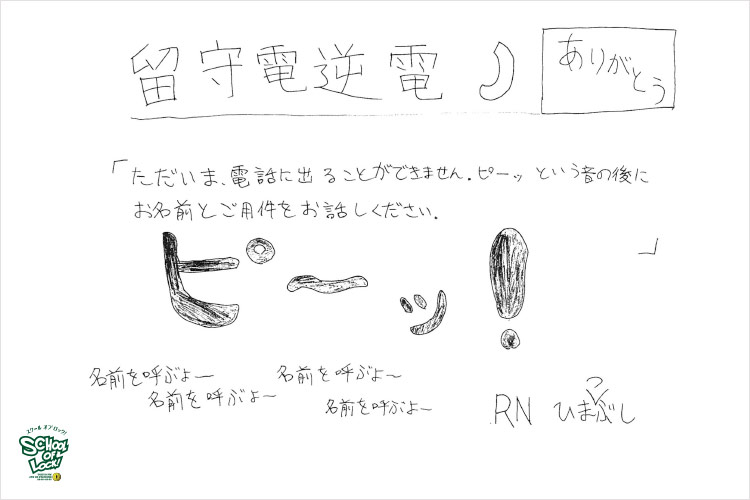 留守電逆電
ありがとう
「ただいま、電話に出ることができません。ピーッという音の後に
お名前とご用件をお話しください。
」
ピーッ!
名前を呼ぶよ〜 名前を呼ぶよ〜
名前を呼ぶよ〜 名前を呼ぶよ〜
RN ひまつぶし
スクール オブ ロック!
SCHOOL
OF
LOCK!